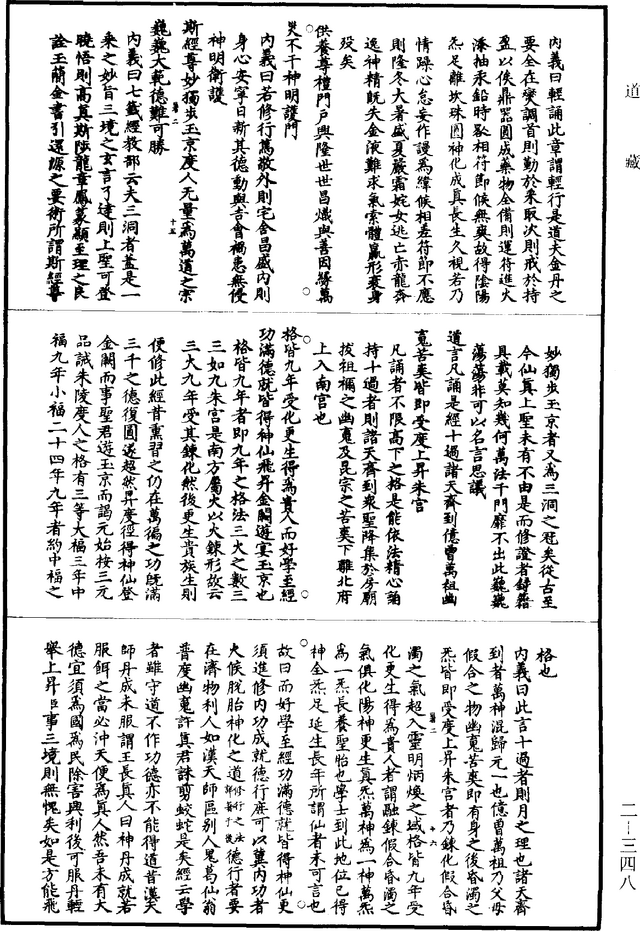 道藏
內義曰輕誦此章謂輕行是道夫金丹之
要全在爕調首則勤於采取次則戒於持
盈以俟鼎器圓成藥物全備則運符進火
添抽汞鉛時晷相符節候無爽故得陰陽
炁足離坎珠圓神化成真長生久視若乃
情躁心怠妄作謾為緯候相差符節不應
則隆冬大暑盛夏嚴霜姹女逃亡赤龍奔
逸神精既失金液難求氣索體羸形衰身
歿矣
供養尊禮門戶興隆世世昌熾與善因緣萬
災不干神明護門
內義曰若修行篤敬外則宅舍昌盛內則
身心安寧日新其德動與吉會禍患無侵
神明衛護
斯經尊妙獨步玉京度人无量為萬道之宗
十五
巍巍大範德難可勝
內義曰七籤經教部云夫三洞者蓋是一
乘之妙旨三境之玄言了達則上聖可登
曉悟則高真斯陟龍章鳳篆顯至理之良
詮玉簡金書引還源之要術所謂斯經尊
妙獨步玉京者又為三洞之冠矣從古至
今仙真上聖未有不由是而修證者錄籍
具載莫知幾何萬法千門靡不出此巍巍
蕩蕩非可以名言思議
道言凡誦是經十過諸天齊到億曾萬祖幽
䰟苦爽皆即受度上昇朱宮
凡誦者不限高下之格是能依法精心誦
持十過者則諸天齊到眾聖降集於房廟
拔祖禰之幽䰟及昆宗之苦爽下離北府
上入南宮也
格皆九年受化更生得為貴人而好學至經
功滿德就皆得神仙飛昇金闕遊宴玉京也
格皆九年者即九年之格法三火之數三
三如九朱宮是南方屬火以火鍊形故云
三火九年受其鍊化然後更生貴族生則
便修此經昔熏習之仍在萬徧之功既滿
三千之德復圓遂超然昇度徑得神仙登
金闕而事聖君遊玉京而謁元始按三元
品誡朱陵度人之格有三等大福三年中
福九年小福二十四年九年者約中福之
格也
內義曰此言十過者則月之理也諸天齊
到者萬神混歸元一也億曾萬祖乃父母
假合之物幽䰟苦爽即有身之後昏濁之
炁皆即受度上昇朱宮者乃鍊化假合昏
十六
濁之氣超入靈明炳煥之域格皆九年受
化更生得為貴人者謂融鍊假合昏濁之
氣俱化陽神更生真炁萬神為一神萬炁
為一炁長養聖胎也學士到此地位已得
神全炁足延生長年所謂仙者未可言也
故曰而好學至經功滿德就皆得神仙更
須進修內功成就德行庶可以冀內功者
火候脫胎神化之道德行者要
在濟物利人如漢天師區別人鬼葛仙翁
普度幽䰟許真君誅剪蛟蛇是矣經云學
者雖守道不作功德亦不能得道昔漢天
師丹成未服謂王長真人曰神丹成就若
服餌之當必沖天便為真人然吾未有大
德宜須為國為民除害興利後可服丹輕
舉上昇臣事三境則無愧矣如是方能飛
二—三四八